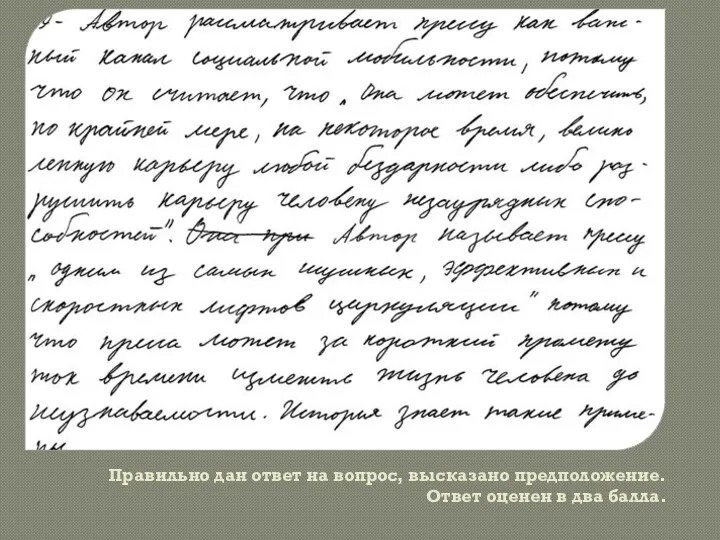 Автор рассматривает прессу как важ-
ный канал социальной мобильности, потому
что он считает, что „ Она может обеспечить,
по крайней мере, на некоторое время, велико
лепную карьеру любой бездарности либо раз-
рушить карьеру человеку незаурядных спо-
собностей". Она при Автор называет прессу
„ одним из самых шумных, эффективных и
скоростных лифтов циркуляции" потому
что пресса может за короткий промежу
ток времени изменить жизнь человека до
неузнаваемости. История знает такие приме-
ры
Правильно дан ответ на вопрос, высказано предположение.
Ответ оценен в два балла.